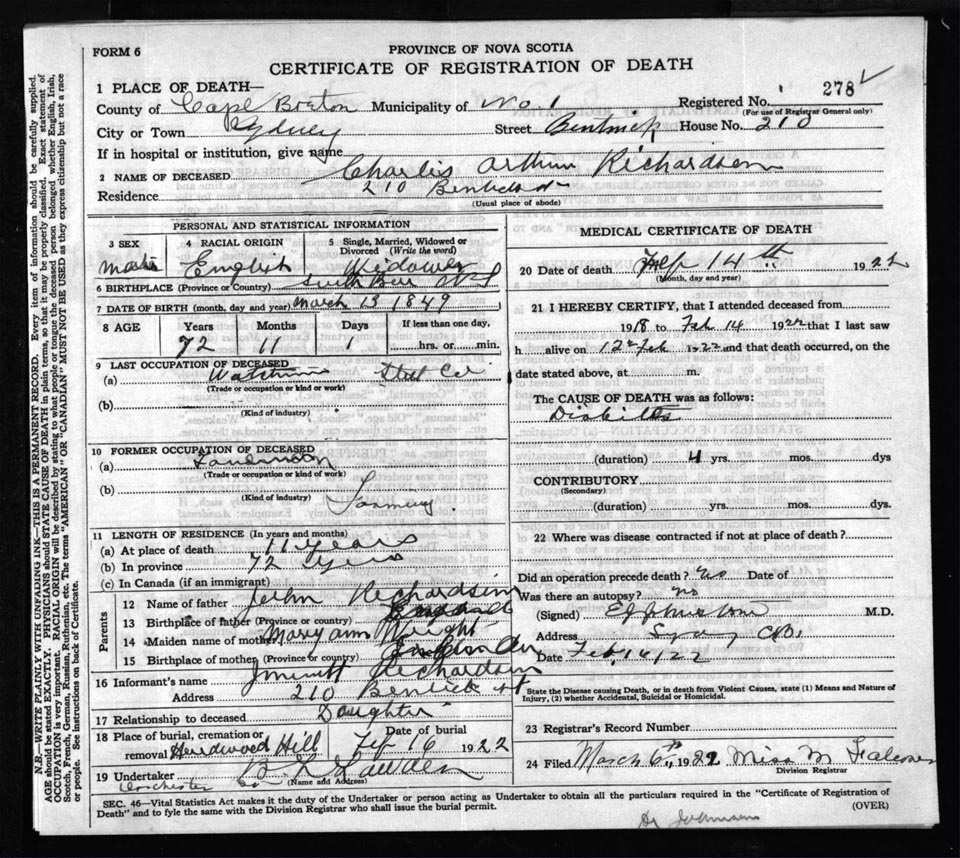 FORM 6
PROVINCE OF NOVA SCOTIA
CERTIFICATE OF REGISTRATION OF DEATH
1 PLACE OF DEATH—
278
County of Cape Breton Municipality of No. 1 Registered No.
(For use of Registrar General only)
City or Town Sydney Street House No. 210
If in hospital or institution, give name
2 NAME OF DECEASED Charlis Arthur Richardson
Residence 210
(Usual place of abode)
PERSONAL AND STATISTICAL INFORMATION
3 SEX 4 RACIAL ORIGIN 5 Single, Married, Widowed or Divorced (Write the word)
English Widower
6 BIRTHPLACE (Province or Country) South Bar N S
7 DATE OF BIRTH (month, day and year) March 13 1849
8 AGE Years Months Days If less than one day,
72 11 1 hrs. or min.
9 LAST OCCUPATION OF DECEASED
(a) Steel Co
(Trade or occupation or kind of work)
(b)
(Kind of industry)
10 FORMER OCCUPATION OF DECEASED
(a)
(Trade or occupation or kind of work)
(b) Farming
(Kind of industry)
11 LENGTH OF RESIDENCE (In years and months)
(a) At place of death 11 years
(b) In province 72 years
(c) In Canada (if an immigrant)
Parents
12 Name of father John Richardson
13 Birthplace of father (Province or country) England
14 Maiden name of mother Mary ann Wright
15 Birthplace of mother (Province or country)
16 Informant's name Richardson
Address 210 st
17 Relationship to deceased Daughter
18 Place of burial, cremation or removal Hardwood Hill
Date of burial Feb 16 1922
19 Undertaker
(Name and Address)
MEDICAL CERTIFICATE OF DEATH
20 Date of death Feb 14th 1922
(Month, day and year)
21 I HEREBY CERTIFY, that I attended deceased from
1918 to Feb 14 1922 that I last saw
h alive on 12 Feb 1922 and that death occurred, on the
date stated above, at m.
The CAUSE OF DEATH was as follows:
Diabitis
(duration) 4 yrs. mos. dys
CONTRIBUTORY
(Secondary)
(duration) yrs. mos. dys.
22 Where was disease contracted if not at place of death?
Did an operation precede death? No Date of
Was there an autopsy? no
(Signed) M.D.
Address Sydney CB.
Date Feb. 14/22
State the Disease causing Death, or in death from Violent Causes, state (1) Means and Nature of
Injury, (2) whether Accidental, Suicidal or Homicidal.
23 Registrar's Record Number
24 Filed March 6th, 1922 Miss M Falconer
Division Registrar
SEC. 46—Vital Statistics Act makes it the duty of the Undertaker or person acting as Undertaker to obtain all the particulars required in the "Certificate of Registration of
Death" and to fyle the same with the Division Registrar who shall issue the burial permit.
(OVER)
Dr Johnson
N.B.—WRITE PLAINLY WITH UNFADING INK—THIS IS A PERMANENT RECORD. Every item of information should be carefully supplied.
AGE should be stated EXACTLY. PHYSICIANS should STATE CAUSE OF DEATH in plain terms, so that it may be properly classified. Exact statement of
OCCUPATION is very important. RACIAL ORIGIN will be described by stating to what people or tongue the deceased person belonged whether English, Irish,
Scotch, French, German, Russian, Ruthenian, etc. The terms "AMERICAN" OR "CANADIAN" MUST NOT BE USED as they express citizenship but not a race
or people. See instructions on back of Certificate.